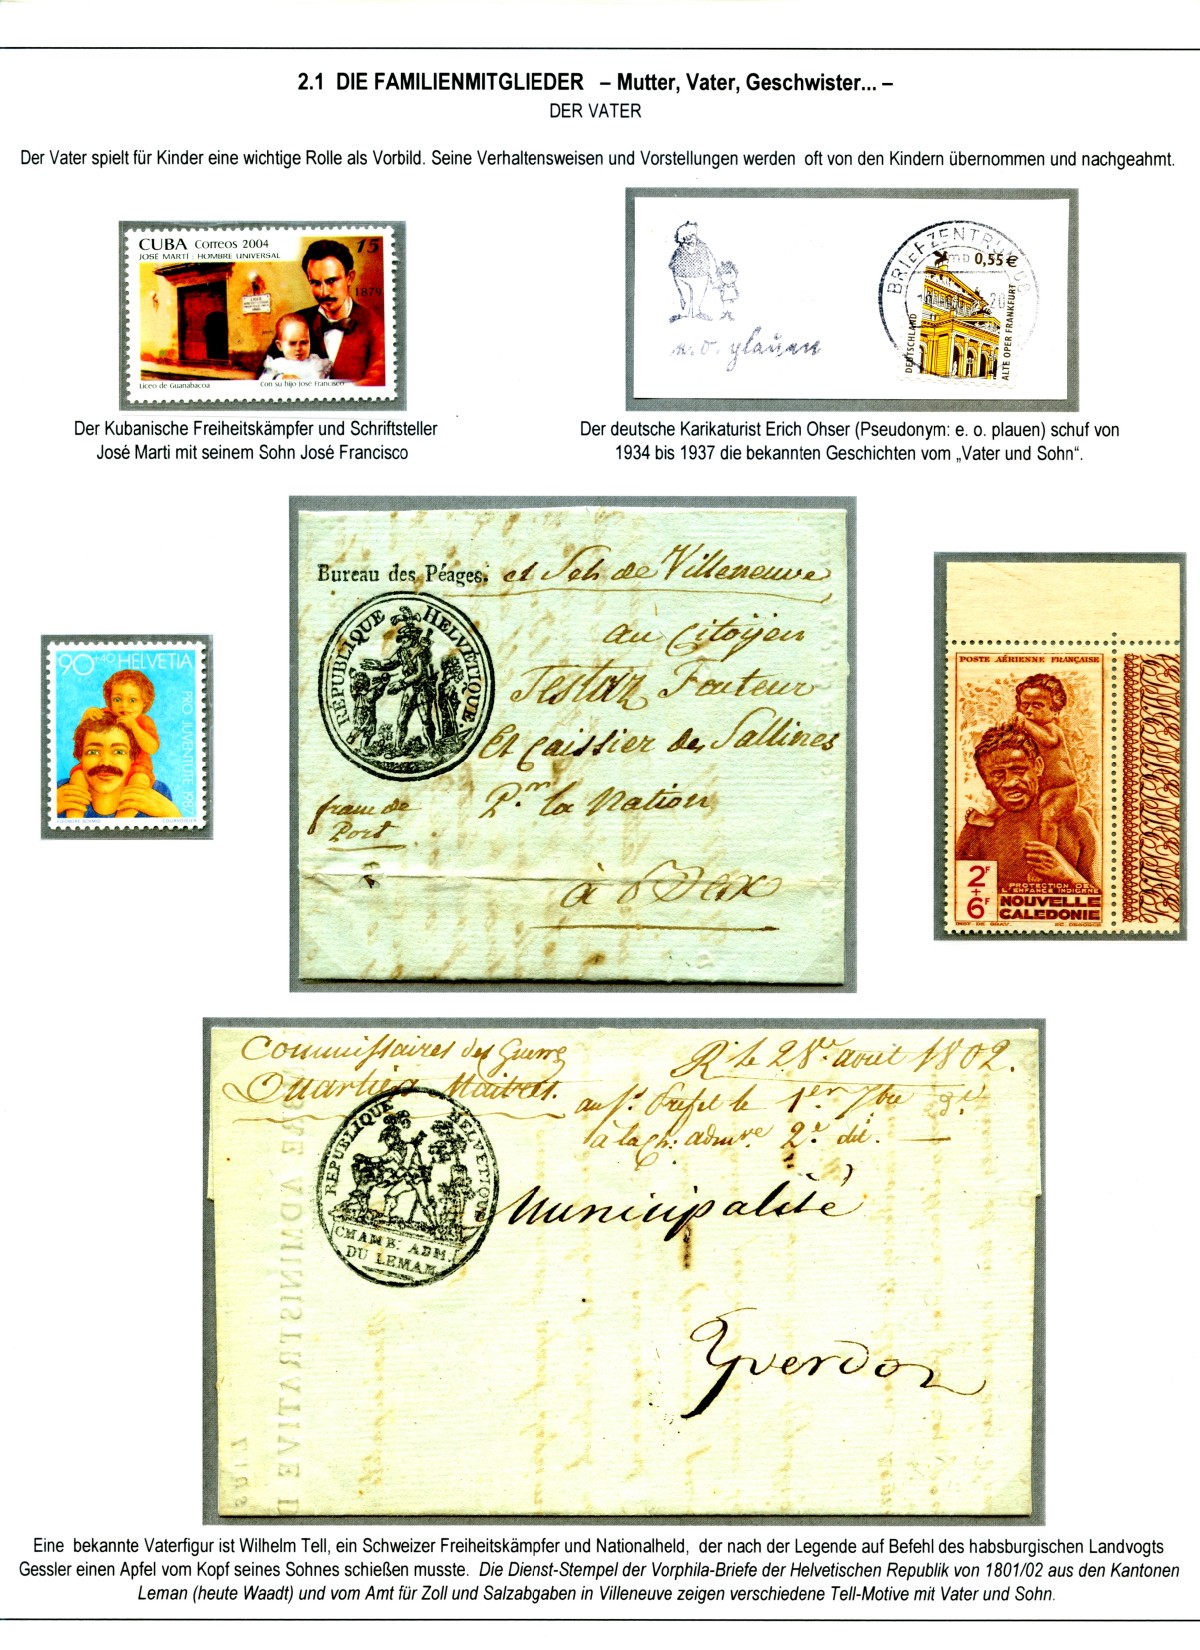 2.1 DIE FAMILIENMITGLIEDER – Mutter, Vater, Geschwister... –
DER VATER
Der Vater spielt für Kinder eine wichtige Rolle als Vorbild. Seine Verhaltensweisen und Vorstellungen werden oft von den Kindern übernommen und nachgeahmt.
CUBA Correos 2004
15
JOSÉ MARTÍ : HOMBRE UNIVERSAL
1879
Liceo de Guanabacoa
Con su hijo José Francisco
BRIEFZENTRUM
0,55€
DEUTSCHLAND
ALTE OPER FRANKFURT
e. o. plauen
Der Kubanische Freiheitskämpfer und Schriftsteller
José Marti mit seinem Sohn José Francisco
Der deutsche Karikaturist Erich Ohser (Pseudonym: e. o. plauen) schuf von
1934 bis 1937 die bekannten Geschichten vom „Vater und Sohn“.
90+40 HELVETIA
PRO JUVENTUTE 1987
COURVOISIER
Bureau des Péages. et Sels de Villeneuve
RÉPUBLIQUE HELVETIQUE.
au Citoyen
et Caissier des Sallines
Pr. la Nation
Port
à Bex
POSTE AÉRIENNE FRANÇAISE
2F
+
6F
PROTECTION DE
L'ENFANCE INDIGÈNE
NOUVELLE
CALEDONIE
Commissaires des Guerres
Quartiers Maitres.
R. le 28e. aout 1802.
au s. Prefet le 1er 7bre
à la ch: admve. 2e. dit.
REPUBLIQUE HELVETIQUE
CHAMB. ADM.
DU LEMAN
Municipalité
Yverdon
Eine bekannte Vaterfigur ist Wilhelm Tell, ein Schweizer Freiheitskämpfer und Nationalheld, der nach der Legende auf Befehl des habsburgischen Landvogts
Gessler einen Apfel vom Kopf seines Sohnes schießen musste. Die Dienst-Stempel der Vorphila-Briefe der Helvetischen Republik von 1801/02 aus den Kantonen
Leman (heute Waadt) und vom Amt für Zoll und Salzabgaben in Villeneuve zeigen verschiedene Tell-Motive mit Vater und Sohn.